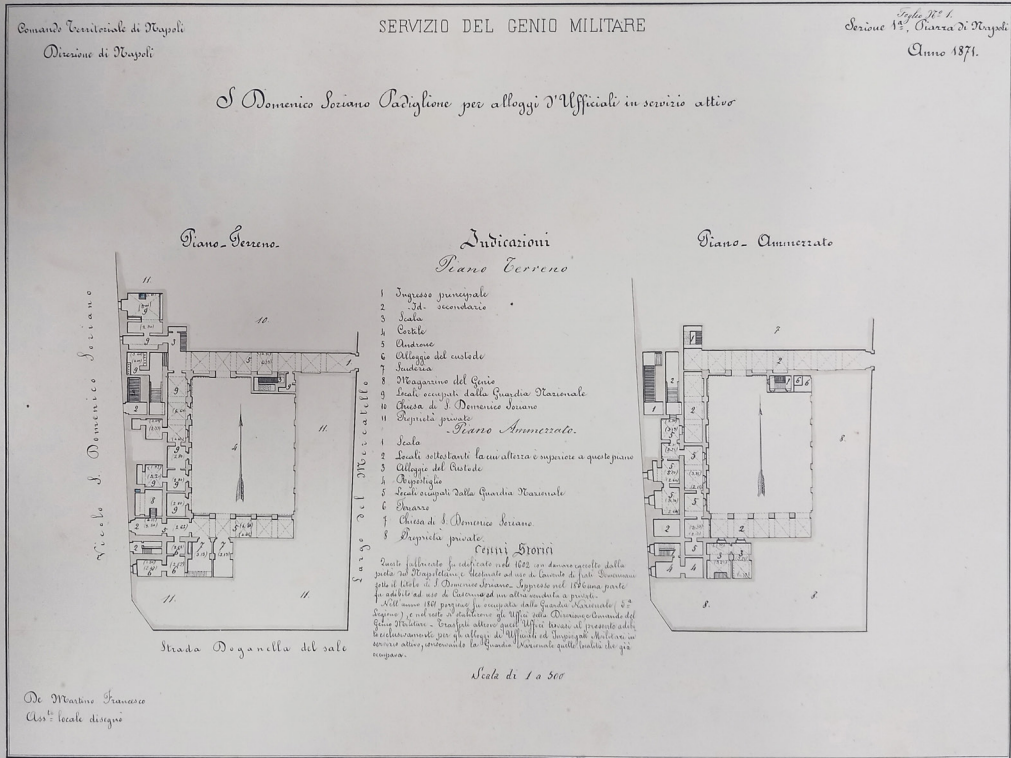 Comando Territoriale di Napoli
Direzione di Napoli
SERVIZIO DEL GENIO MILITARE
Foglio N.º 1.
Sezione 1.ª, Piazza di Napoli
Anno 1871.
S. Domenico Soriano Padiglione per alloggi d'Ufficiali in servizio attivo
Piano-Terreno-
Vicolo S. Domenico Soriano
Largo del Mercatello
Strada Doganella del sale
Indicazioni
Piano Terreno
1 Ingresso principale
2 -Id- secondario
3 Scala
4 Cortile
5 Androne
6 Alloggio del custode
7 Scuderia
8 Magazzino del Genio
9 Locali occupati dalla Guardia Nazionale
10 Chiesa di S. Domenico Soriano
11 Proprietà private
-Piano Ammezzato.
1 Scala
2 Locali sottostanti la cui altezza è superiore a questo piano
3 Alloggio del Custode
4 Ripostiglio
5 Locali ocupati dalla Guardia Nazionale
6 Terazzo
7 Chiesa di S. Domenico Soriano
8 Proprietà private
Cenni Storici
fabbricato fu edificato nel 1602 con denaro raccolto dalla
pietà dei Napoletani, e destinato ad uso di Convento di frati Domenicani
sotto il titolo di S. Domenico Soriano- Soppresso nel una parte
fu adibito ad uso di Caserma ed un altra venduta a privati.
Nell'anno 1861 porzione fu occupata dalla Guardia Nazionale
Legione), e nel resto si stabilirono gli Uffici della Direzione e Comando del
Genio Militare- altrove questi Uffici trovasi al presente
esclusivamente per gli alloggi di Ufficiali ed Impiegati Militari in
servizio attivo, conservando la Guardia Nazionale quelle località che già
occupava.
Scala di 1 a 500
Piano- Ammezzato
De Martino Francesco
Ass.te locale disegnò